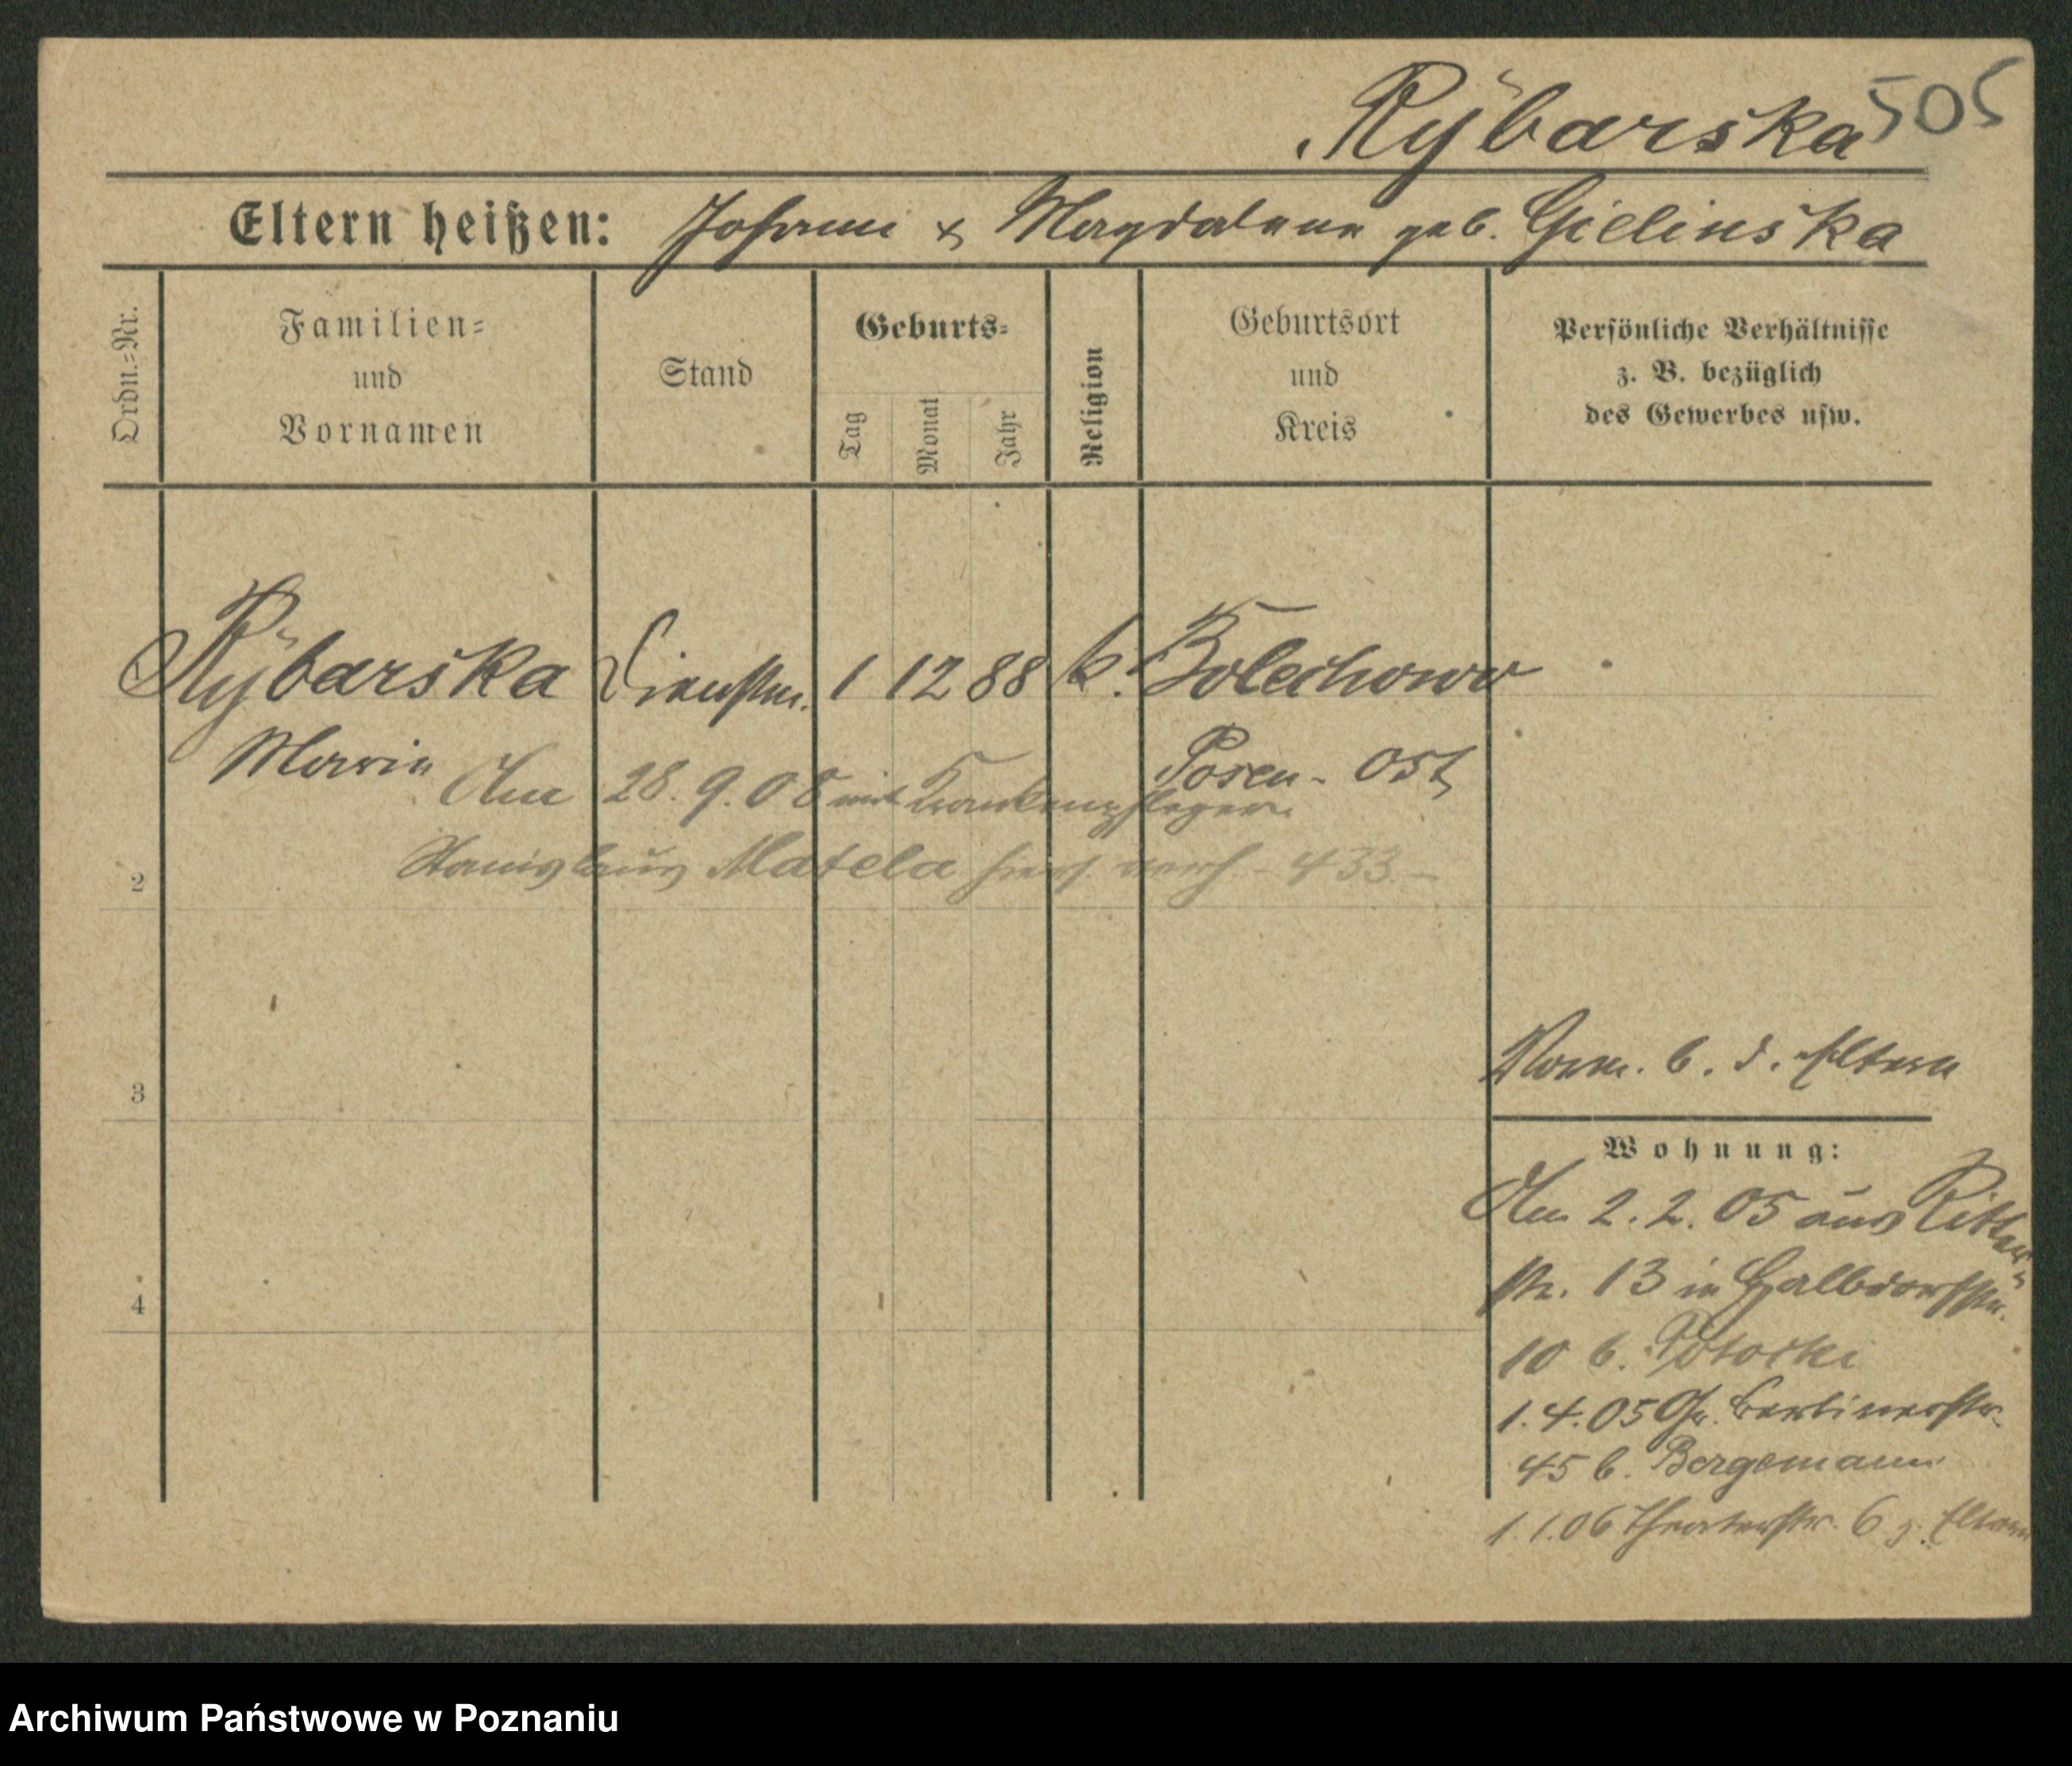 Rÿbarska 505
Eltern heißen: Johann & Magdalena geb. Gielinska
Ordn.=Nr.
Familien=
und
Vornamen
Stand
Geburts=
Tag
Monat
Jahr
Religion
Geburtsort
und
Kreis
Persönliche Verhältnisse
z. B. bezüglich
des Gewerbes usw.
Rÿbarska Dienstm. 1 12 88 k. Bolechowo
Maria Posen-Ost
Am 28.9.08 mit Krankenpfleger
Stanislaus Matela hiers. verh. - 433.-
2
3
4
Vorm. b. d. Eltern
Wohnung:
Am 2.2.05 aus Ritter=
str. 13 in Halbdorfstr.
10 b. Potocki
1.4.05 Gr. Berlinerstr.
45 b. Bergemann
1.1.06 Theaterstr. 6 z. Eltern
Archiwum Państwowe w Poznaniu